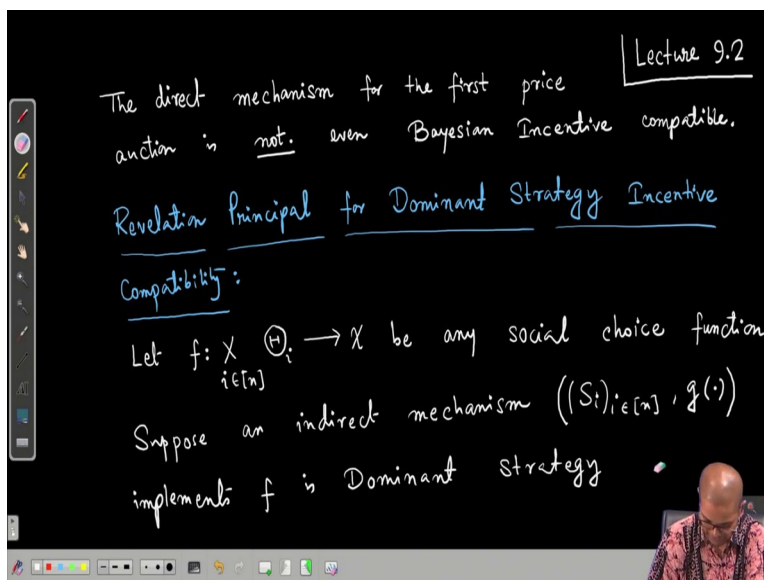 Lecture 9.2
The direct mechanism for the first price
auction is not. even Bayesian Incentive compatible.
Revelation Principal for Dominant Strategy Incentive
Compatibility:
Let f: X Θi → X be any social choice function
i∈[n]
Suppose an indirect mechanism ((Si)i∈[n], g(·))
implements f is Dominant strategy